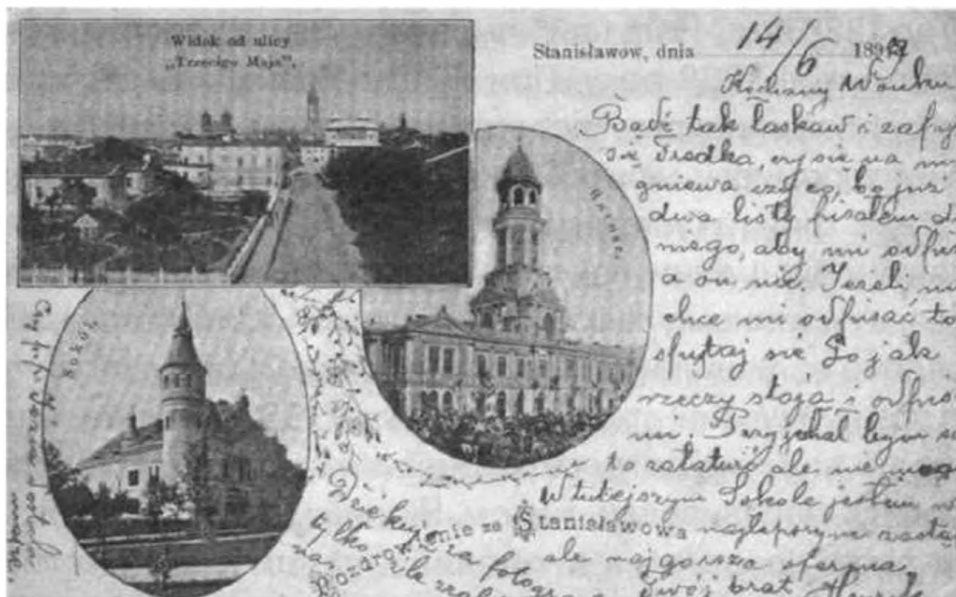 Widok od ulicy
„Trzeciego Maja".
Stanisławow, dnia 14/6 189
Kochany
Bądź tak łaskaw i zapy
się Frodka, czy się na m
gniewa czy co, bo już
dwa listy pisałem d
niego, aby mi odpis
a on nie. Jeżeli ni
chce mi odpisać to
spytaj się Go jak
rzeczy stoją i odpis
mi. Przyjechał bym s
to załatwić ale nie mog
W tutejszym Sokole jestem w
najlepszym zastę
ale najgorsza
Twój brat Henryk
Ratusz
Sokół
Pozdrowienie ze Stanisławowa
Dziękuję za fotogra
tylko